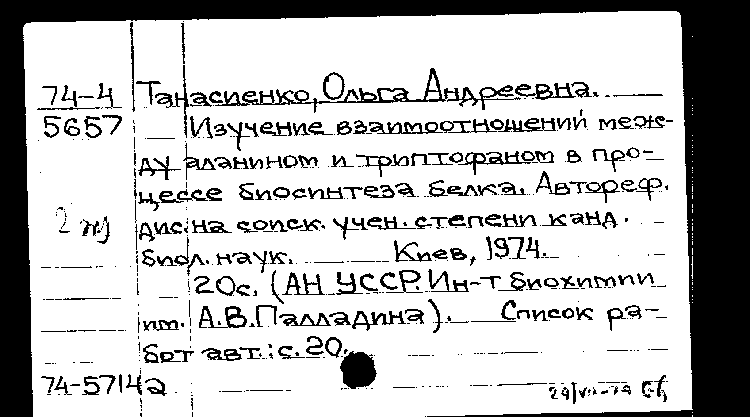 74-4 Танасиенко, Ольга Андреевна.
5657 Изучение взаимоотношений меж-
ду аланином и триптофаном в про-
цессе биосинтеза белка. Автореф.
дис. на соиск. учен. степени канд.
биол. наук. Киев, 1974.
20с. (АН УССР. Ин-т биохимии
им. А.В.Палладина). Список ра-
бот авт.: с. 20.
74-5714а